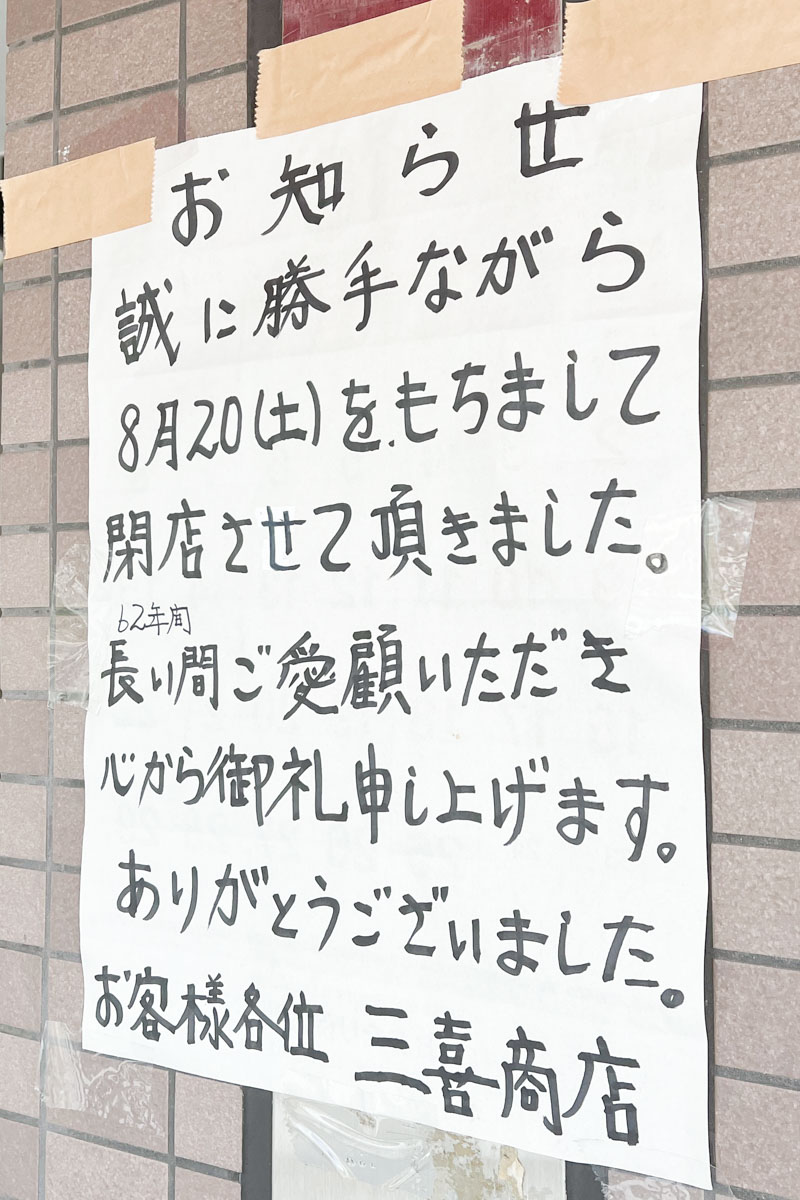 お知らせ
誠に勝手ながら
8月20(土)をもちまして
閉店させて頂きました。
62年間
長い間ご愛顧いただき
心から御礼申し上げます。
ありがとうございました。
お客様各位 三喜商店